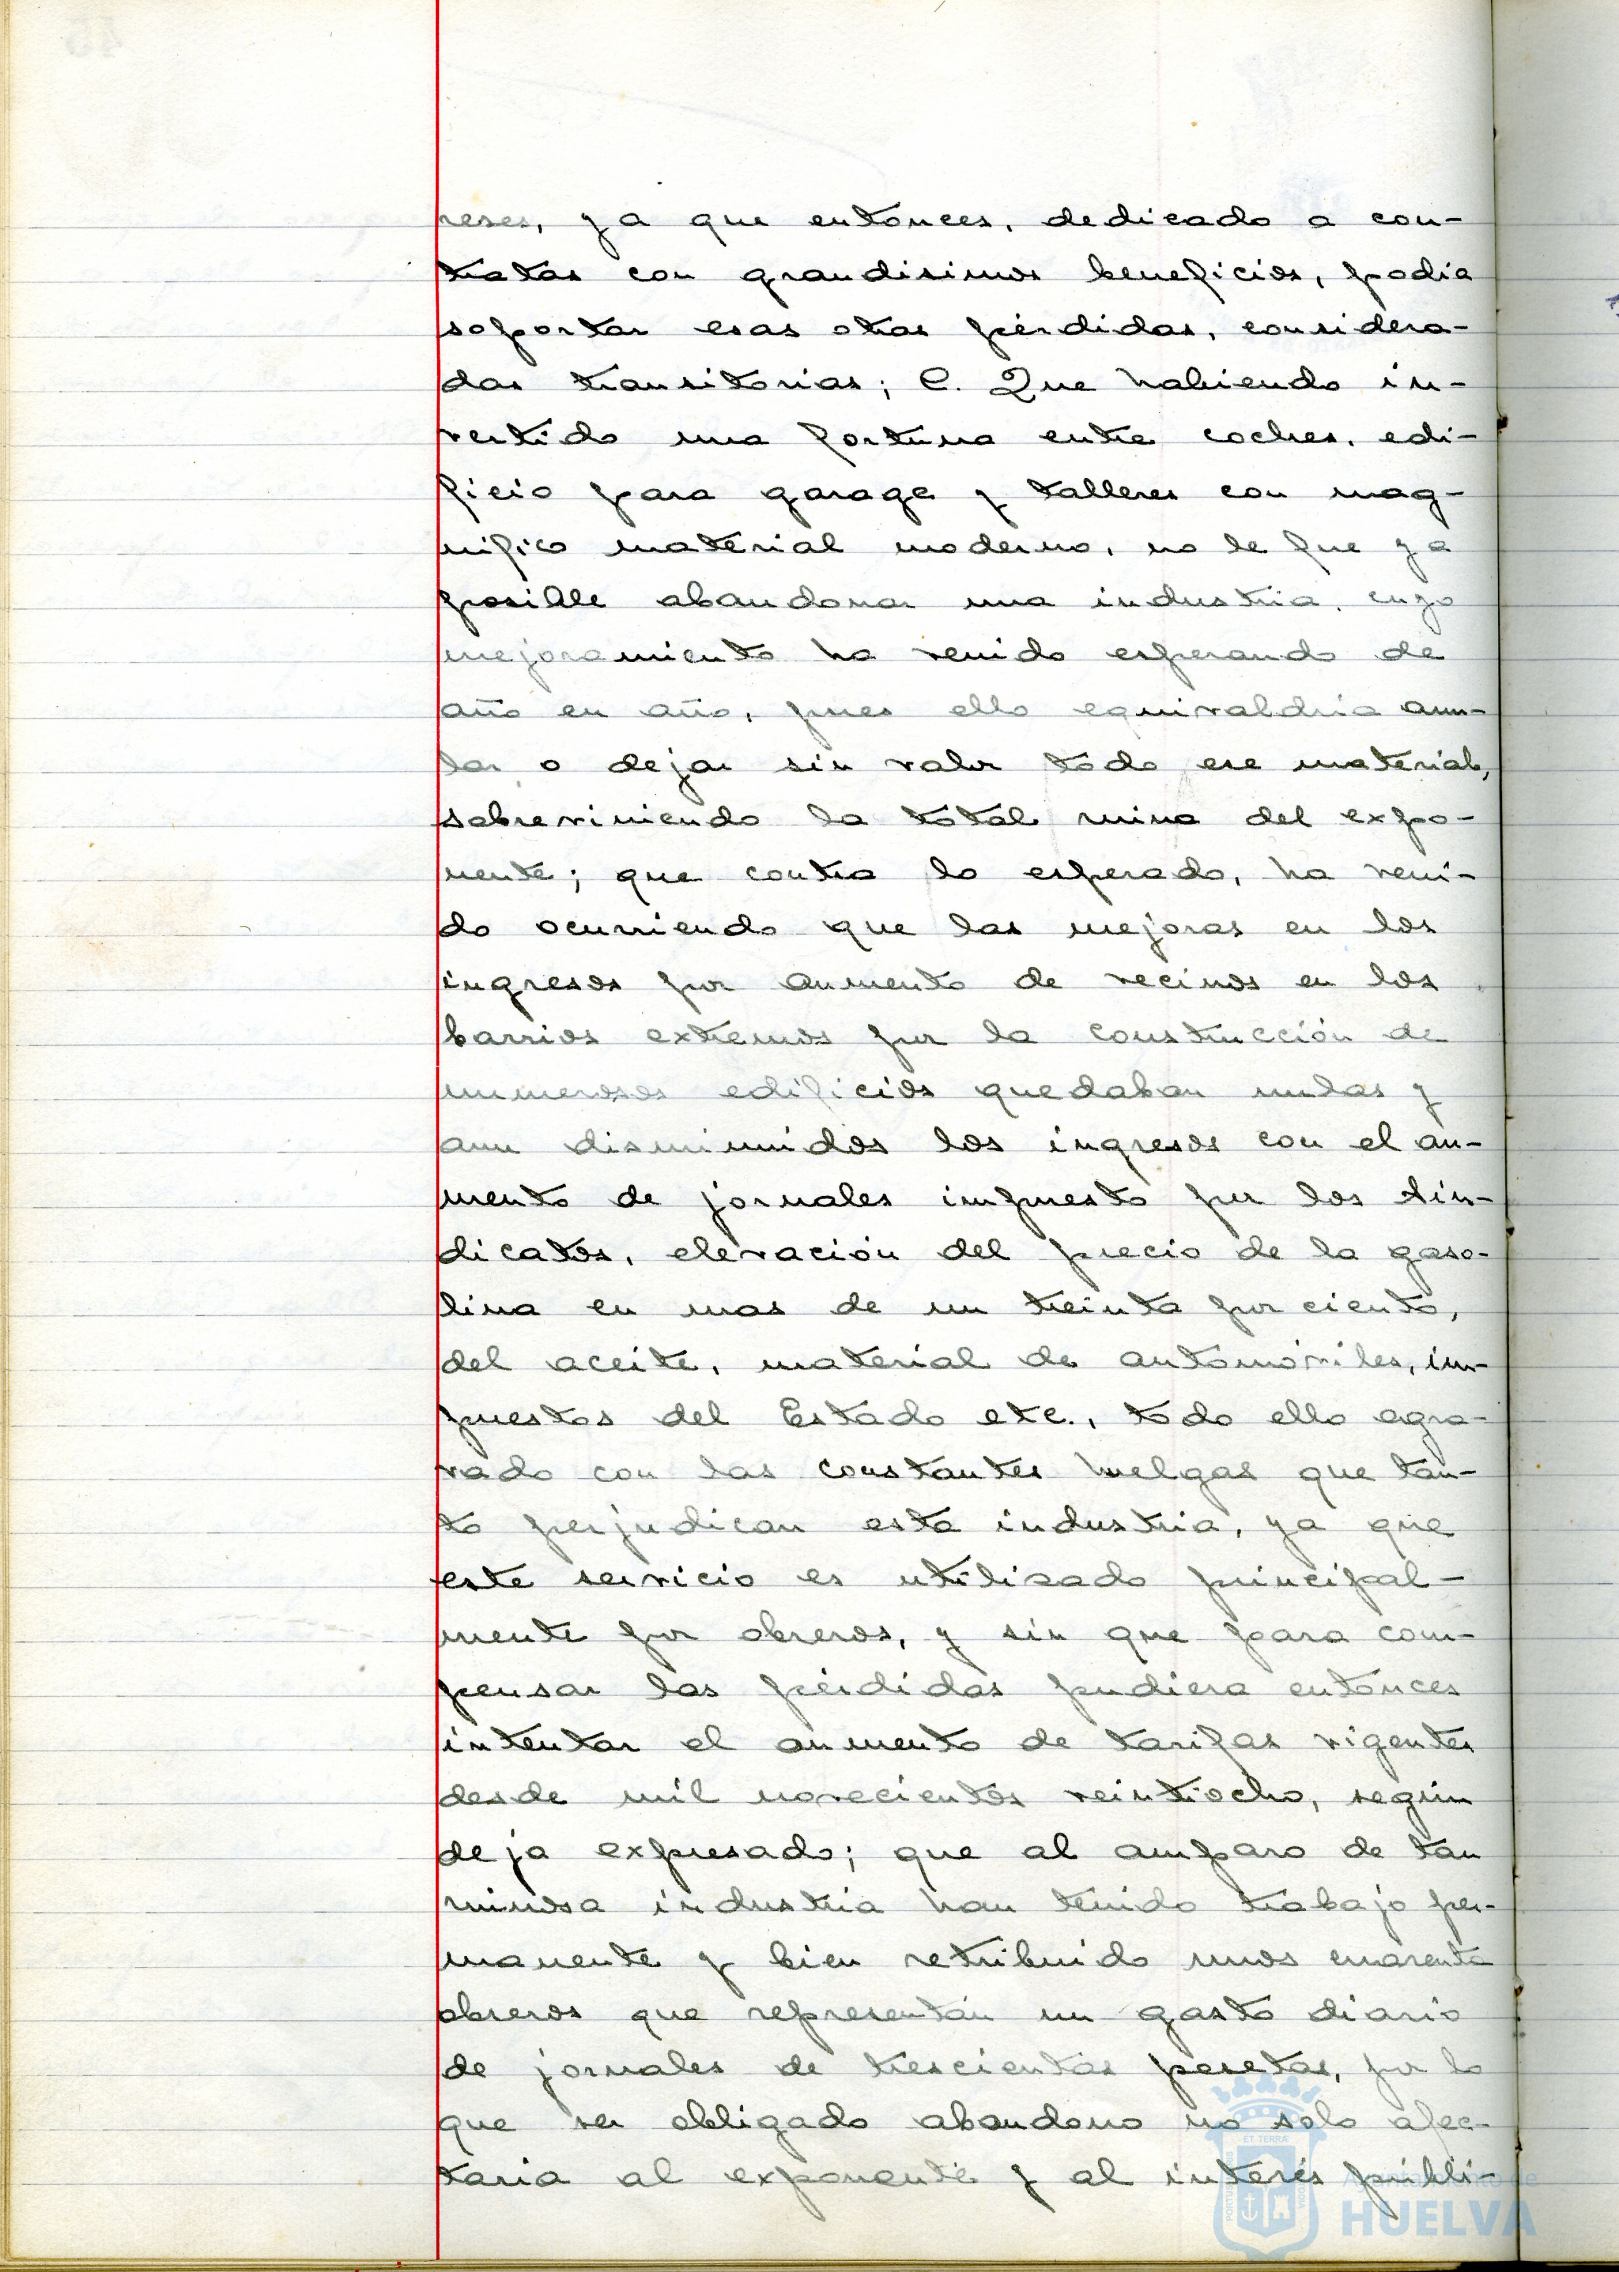 reses, ya que entonces, dedicado a con-
tratas con grandisimos beneficios, podia
soportar esas otras pérdidas, considera-
das transitorias; C. Que habiendo in-
vertido una fortuna entre coches, edi-
ficio para garage y talleres con mag-
nifico material moderno, no le fue ya
posible abandonar una industria, cuyo
mejoramiento ha venido esperando de
año en año, pues ello equivaldria anu-
lar o dejar sin valor todo ese material,
sobreviniendo la total ruina del expo-
nente; que contra lo esperado, ha veni-
do ocurriendo que las mejoras en los
ingresos por aumento de vecinos en los
barrios extremos por la construcción de
numerosos edificios quedaban nulas y
aun disminuidos los ingresos con el au-
mento de jornales impuesto por los Sin-
dicatos, elevación del precio de la gaso-
lina en mas de un treinta por ciento,
del aceite, material de automóviles, im-
puestos del Estado etc., todo ello agra-
vado con las constantes huelgas que tan-
to perjudican esta industria, ya que
este servicio es utilizado principal-
mente por obreros, y sin que para com-
pensar las pérdidas pudiera entonces
intentar el aumento de tarifas vigentes
desde mil novecientos veintiocho, según
deja expresado; que al amparo de tan
ruinosa industria han tenido trabajo per-
manente y bien retribuido unos cuarenta
obreros que representan un gasto diario
de jornales de trescientas pesetas, por lo
que su obligado abandono no solo afec-
taria al exponente y al interés públi-
Ayuntamiento de
HUELVA